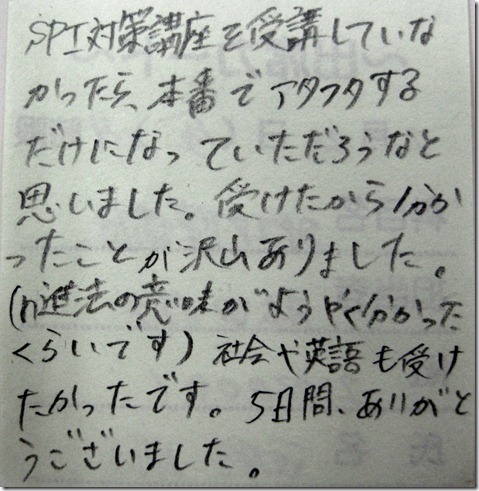 SPI対策講座を受講していな
かったら、本番でアタフタする
だけになっていただろうなと
思いました。受けたから分か
ったことが沢山ありました。
(n進法の意味がようやく分かった
くらいです) 社会や英語も受け
たかったです。5日間、ありがと
うございました。
氏名